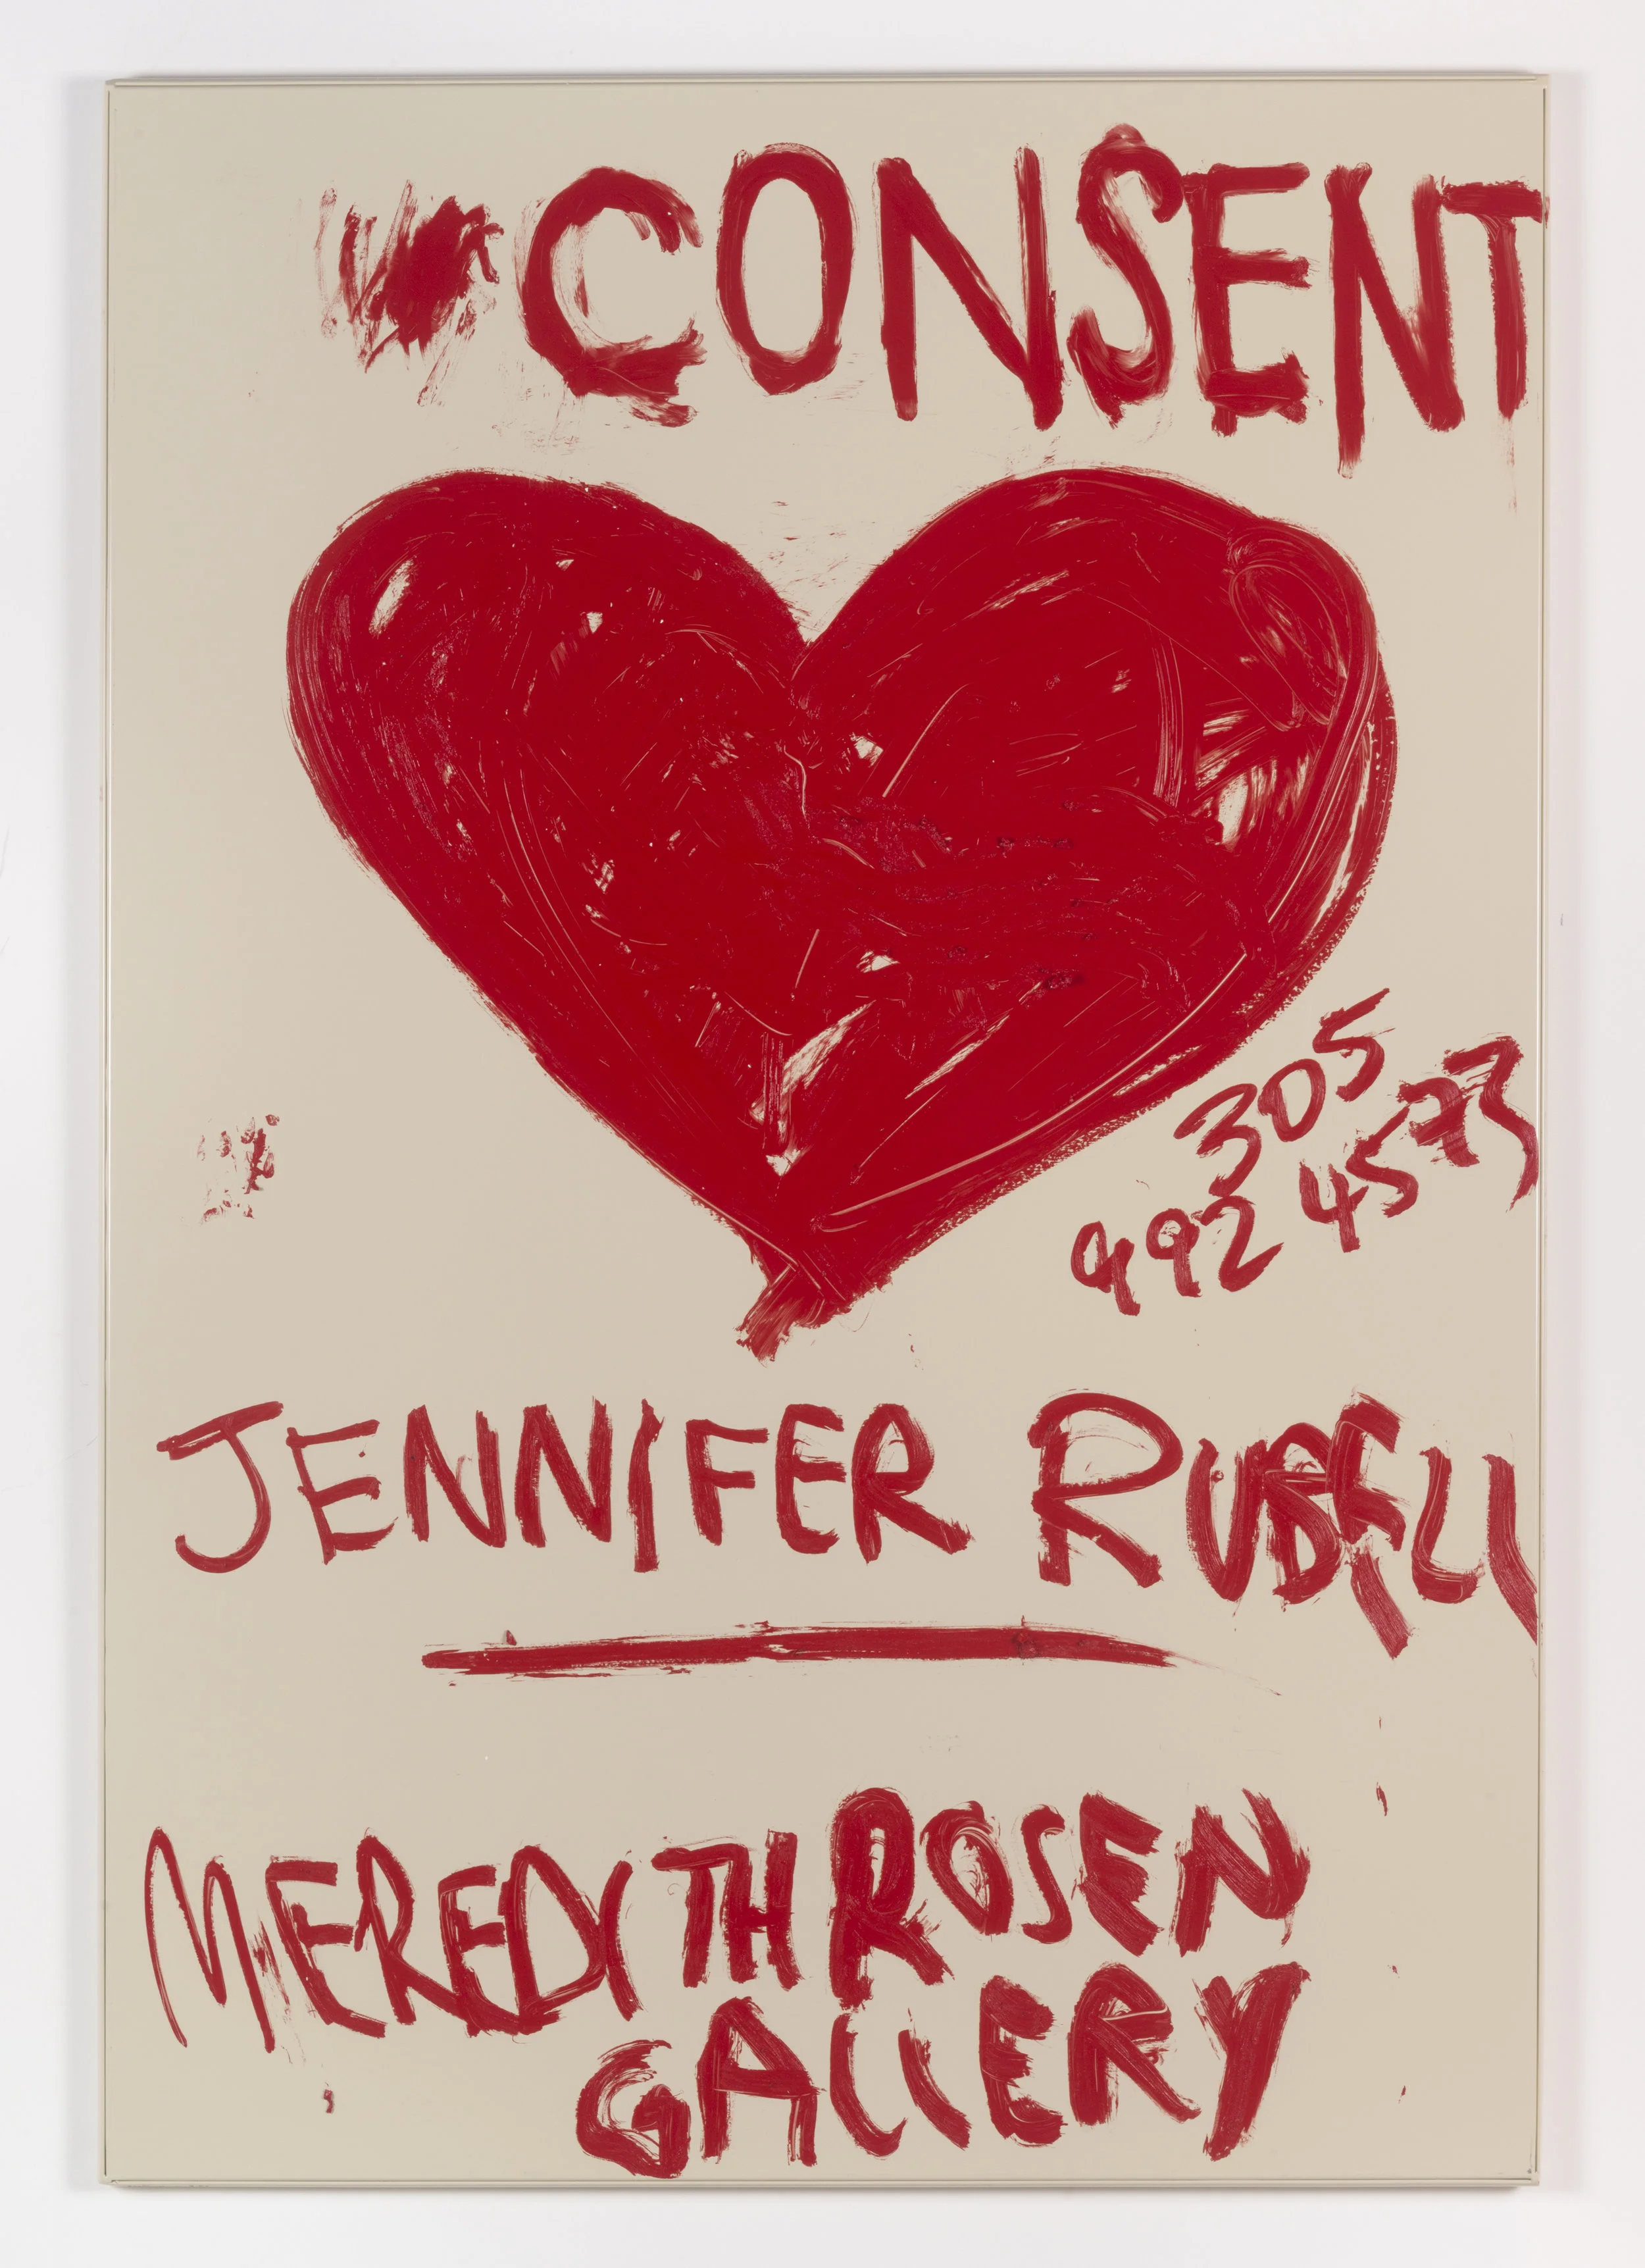 CONSENT
305
992 4573
JENNIFER RUBELL
MEREDITH ROSEN
GALLERY